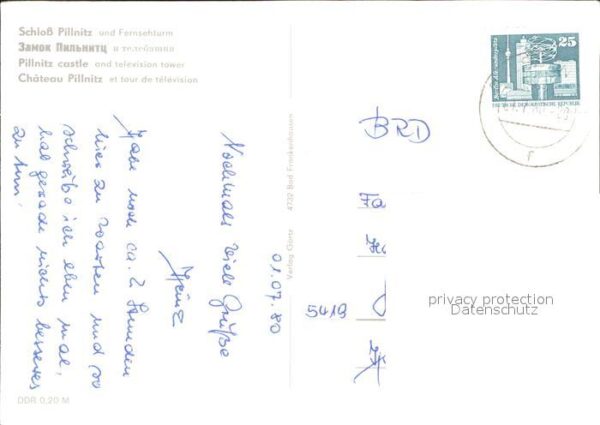 Schloß Pillnitz und Fernsehturm
Замок Пильнитц и телебашня
Pillnitz castle and television tower
Château Pillnitz et tour de télévision
Habe noch ca. 2 Stunden
hier zu warten und so
schreibe ich eben mal,
hab gerade nichts besseres
zu tun!
Nochmals viele Grüße
Heinz
01.07.80
DDR 0,20 M
Verlag Görtz 4732 Bad Frankenhausen
25
Berlin, Alexanderplatz
DEUTSCHE DEMOKRATISCHE REPUBLIK
BRD
Fa
5419
privacy protection
Datenschutz